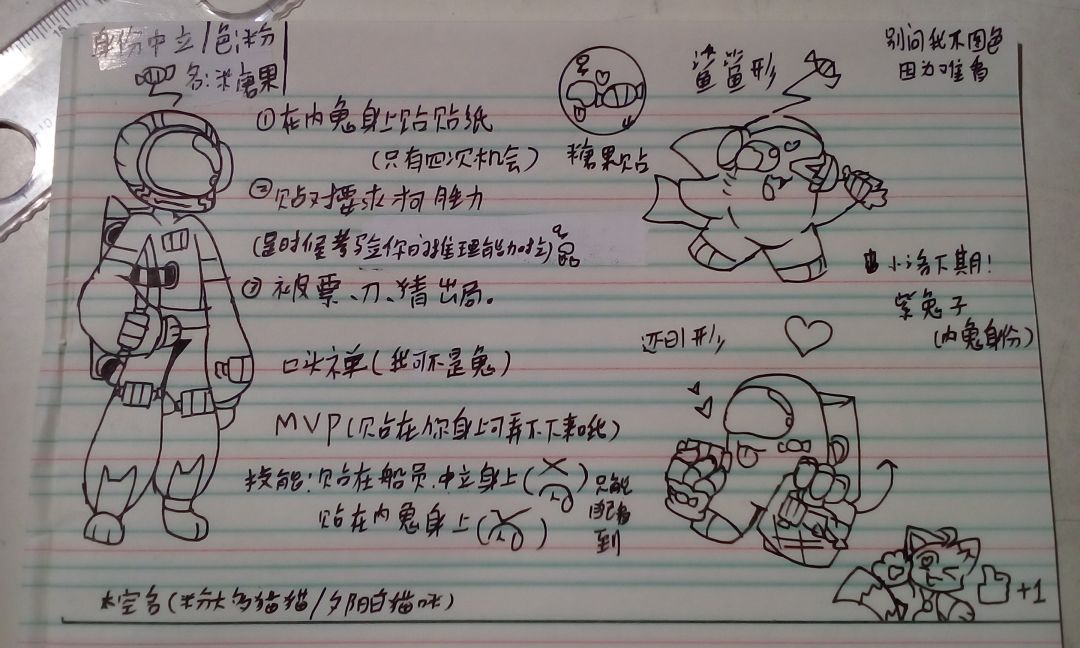 身份中立/色:粉
名:米糖果
①在内鬼身上贴贴纸
(只有四次机会)
②贴对要求才可胜利
(是时候考验你的推理能力啦)
③被票、刀、猜出局。
口头禅(我可不是鬼)
MVP(贴在你身上可弄不下来哦)
技能:贴在船员、中立身上( )只能自己看到
贴在内鬼身上( )
空名(粉大白猫猫/夕阳白猫咪)
糖果贴
鲨鲨形
别问我不图色
因为难看
小洛下期!
紫兔子
(内鬼身份)
还日形
+1